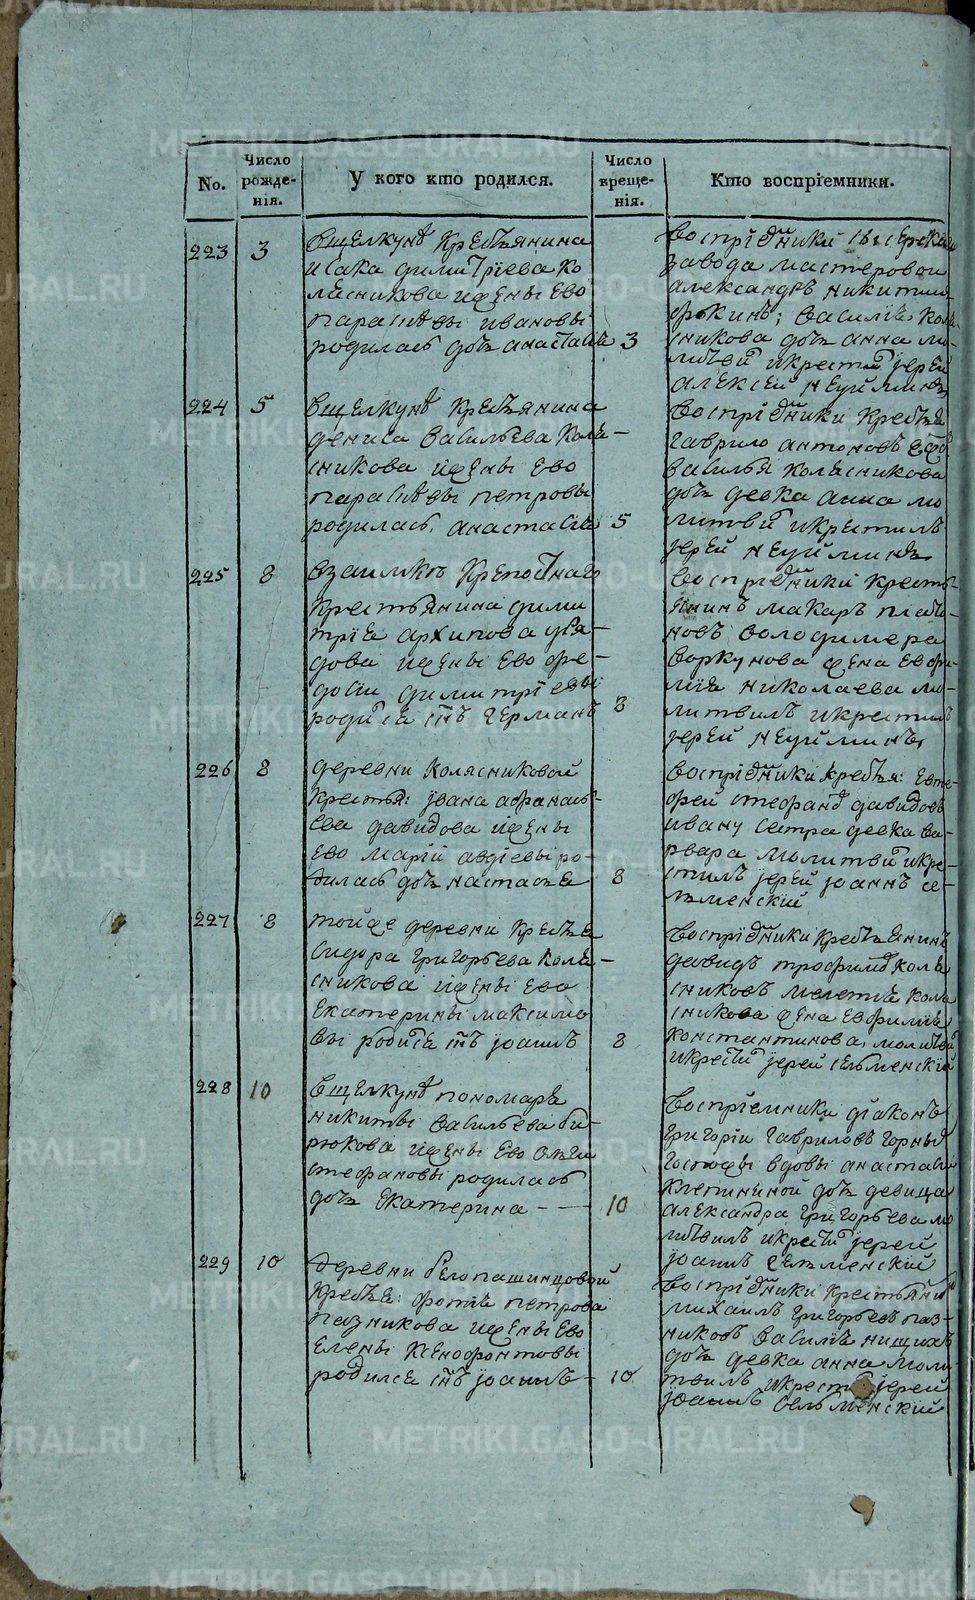 METRIKI.GASO-URAL.RU
No.
Число рожде-нія.
У кого кто родился.
Число креще-нія.
Кто воспріемники.
223
3
вщелкунѣ крестьянина
исака димитріева ко
лясникова ижены ево
парасквы ивановы
родилась дочь анастасія
3
завода мастеровои
александръ никитинъ
василія коля
сникова дочь анна мо
литвил икрестил іереи
алексеи неуйминъ
224
5
вщелкунѣ крестьянина
дениса васильева коля
сникова ижены ево
парасквы петровы
родилась анастасія
5
воспріемники крестья
гаврило антоновъ
василья колясникова
дочь девка анна мо
литвил икрестилъ
іерей неуйминъ
225
8
крепостнаго
крестьянина дими
трія архипова
дова ижены ево фе
досіи димитріевы
родился сынъ германъ
8
воспріемники кресть
янинъ макаръ плато
новъ володимера
воркунова жена евфи
мія николаева мо
литвилъ икрестилъ
іерей неуйминъ
226
8
деревни колясниковой
крестья: іоана афанась
ева давидова ижены
ево маріи авдіевы ро
дилась дочь настасья
8
воспріемники крестья: евти
фей стефановъ давидовъ
ивану сестра девка ва
рвара молитвил икре
стилъ іерей іоаннъ се
льменскій
227
8
тойже деревни крестья
сидора григорьева коля
сникова ижены ево
екатерины максимо
вы родился сынъ іоаннъ
8
воспріемники крестьянинъ
давидъ трофимовъ коля
сниковъ мелетія коля
сникова жена евфимія
константинова, молитвил
икрестил іерей сельменскій
228
10
вщелкунѣ пономаря
никиты васильева би
рюкова ижены ево
стефановы родилась
дочь екатерина
10
воспріемники діаконъ
григоріи гавриловъ горныи
госпожы вдовы анастасіи
клепининой дочь девица
александра григорьева мо
литвилъ икрестил іерей
іоаннъ сельменскій
229
10
деревни белопашинцовой
крестья: фотія петрова
пазникова ижены ево
елены ксенофонтовы
родился сынъ іоаннъ
10
воспріемники крестьянинъ
михаилъ григорьевъ паз
никовъ василія нищихъ
дочь девка анна моли
твилъ икрестил іерей
іоаннъ сельменскій